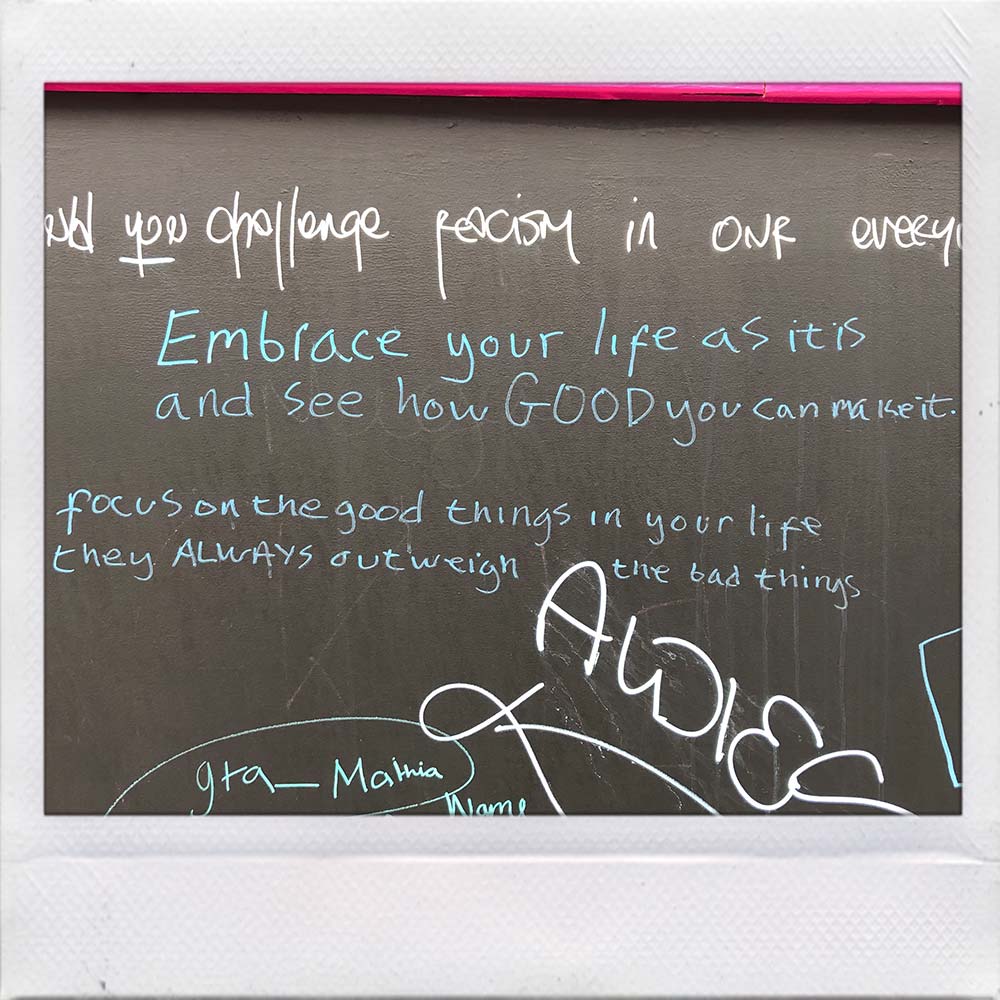 you challenge racism in our every
Embrace your life as it is
and see how GOOD you can make it.
focus on the good things in your life
they ALWAYS outweigh the bad things
gta_Mathia
Name